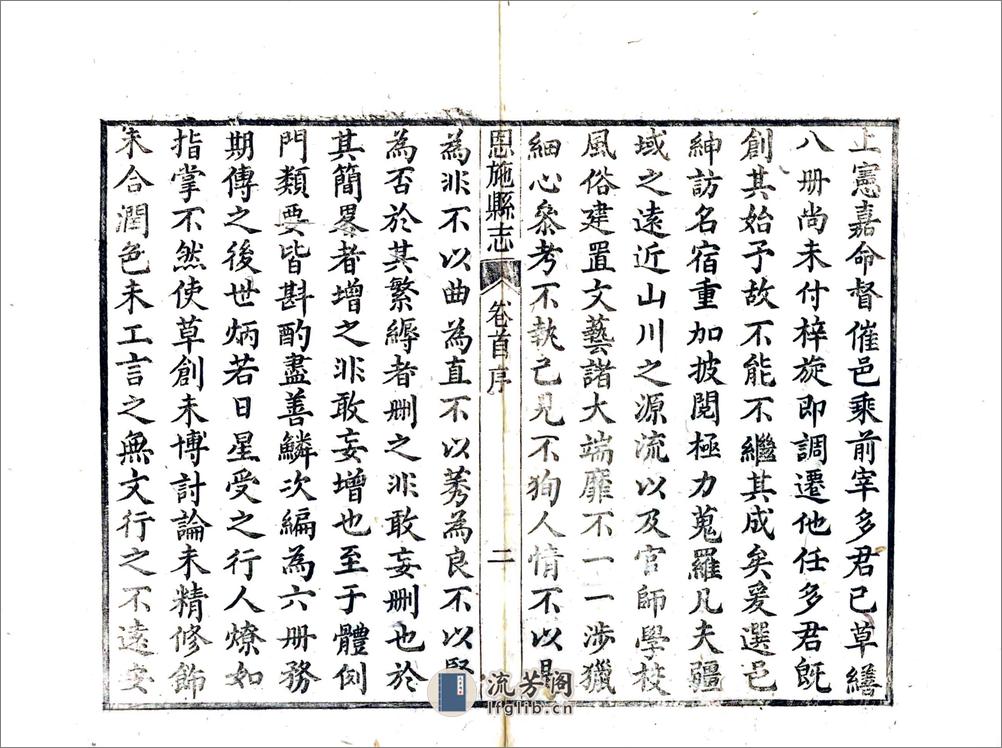 上憲嘉命督催邑乘前宰多君已草繕
八册尚未付梓旋即調遷他任多君既
創其始予故不能不繼其成矣爰選邑
紳訪名宿重加披閱極力蒐羅凡夫疆
域之遠近山川之源流以及官師學校
風俗建置文藝諸大端靡不一一涉獵
細心叅考不執己見不狥人情不以是
恩施縣志 卷首序 二
為非不以曲為直不以莠為良不以賢
為否於其繁縟者刪之非敢妄刪也於
其簡畧者增之非敢妄增也至于體例
門類要皆斟酌盡善鱗次編為六册務
期傳之後世炳若日星受之行人燎如
指掌不然使草創未博討論未精修飾
未合潤色未工言之無文行之不遠安
流芳阁
lfglib.cn